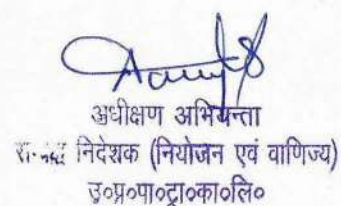 अधीक्षण अभियन्ता
निदेशक (नियोजन एवं वाणिज्य)
उ०प्र०पा०ट्रा०का०लि०